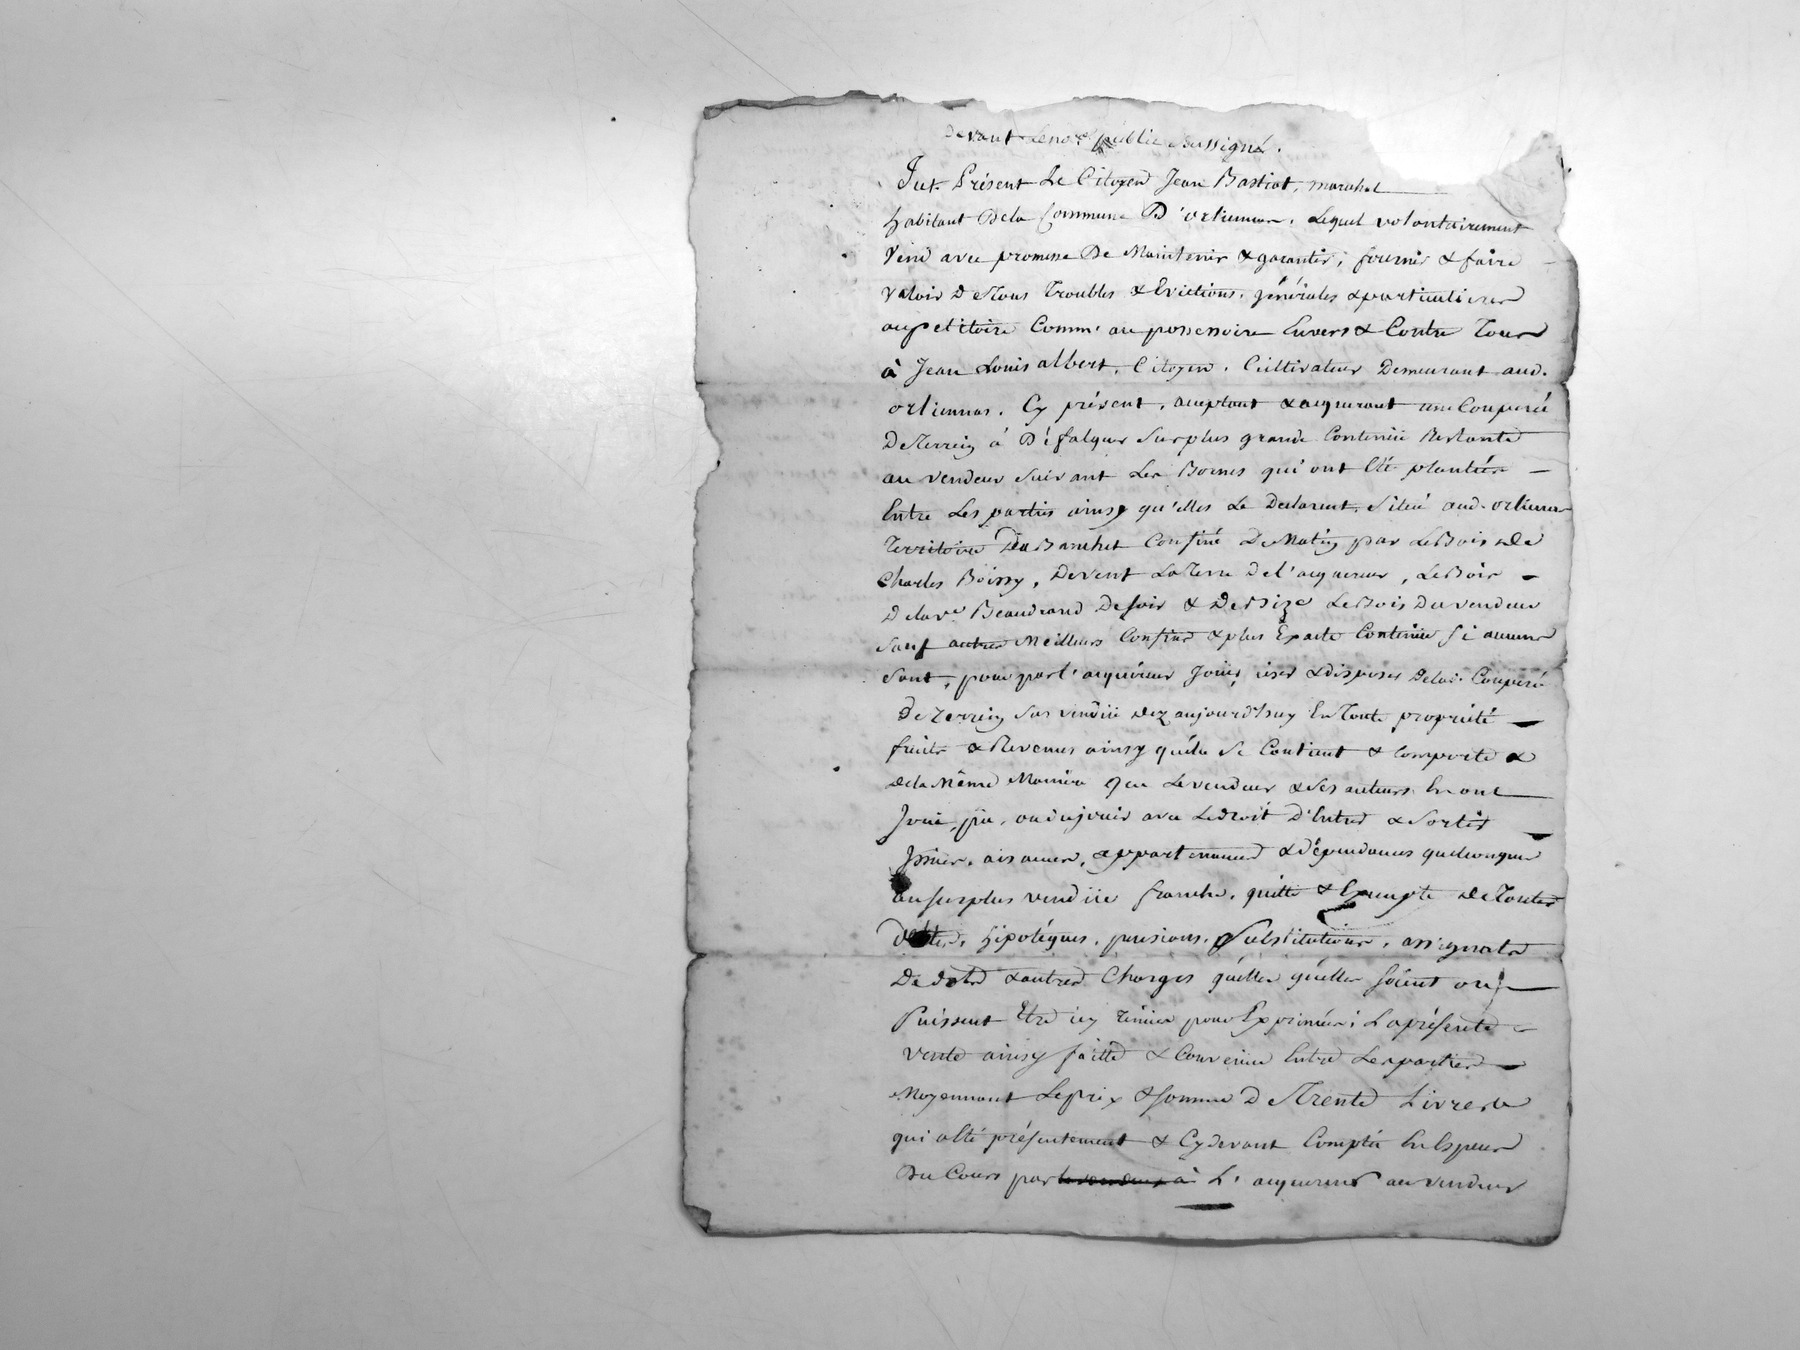 Devant le not.re public soussigné.
Fut Présent Le Citoyen Jean Bastiat, marchal
habitant De la Commune D'orliennas. Lequel volontairement
Vend avec promesse De Maintenir & garantir, fournir & faire
valoir De Tous Troubles & Evictions, générales & particulieres
au petitoire Comm' au possessoire Envers & Contre Tous
à Jean Louis albert, Citoyen, Cultivateur Demeurant aud.
orliennas. Cy présent, acceptant & acquerant une Couperée
De Terrein à Défalquer Sur plus grande Contenüe Restante
au vendeur suivant Les Bornes qui ont Eté plantées
Entre Les parties ainsy qu'elles Le Declarent, situé aud. orliennas
Territoire Du Banchet Confiné De Matin par Le Bois de
Charles Boissy, De vent La Terre De l'acquereur, Le Bois
De la ve. Beaudrand De soir & De Bize Le Bois Du vendeur
sauf autres Meilleurs Confins & plus Exacte Contenüe si aucuns
sont, pour par l'acquéreur Jouir, user & disposer De lad. Couperée
De Terrein sus vendüe dez aujourd'huy En Toute propriété
fruits & Revenus ainsy qu'elle se Contient & Comporte &
de la Même Manière que Le vendeur & ses auteurs En ont
Joui, pû, ou dû jouir avec Le droit D'Entrée & Sortie
Issües, aisances, appartenances & Dépendances quelconques
au surplus vendüe franche, quitte & Exempte de Toutes
Dettes, hipotéques, pensions, Substitutions, assignats
De dots & autres Charges qu'elles qu'elles soient ou
Puissent Etre icy Tenües pour Exprimées; La présente
vente ainsy faitte & Convenüe Entre Les parties
Moyennant Le prix & somme De Trente Livres
qui a Eté présentement & Cy devant Comptée En Especes
Du Cours par L'acquereur au vendeur